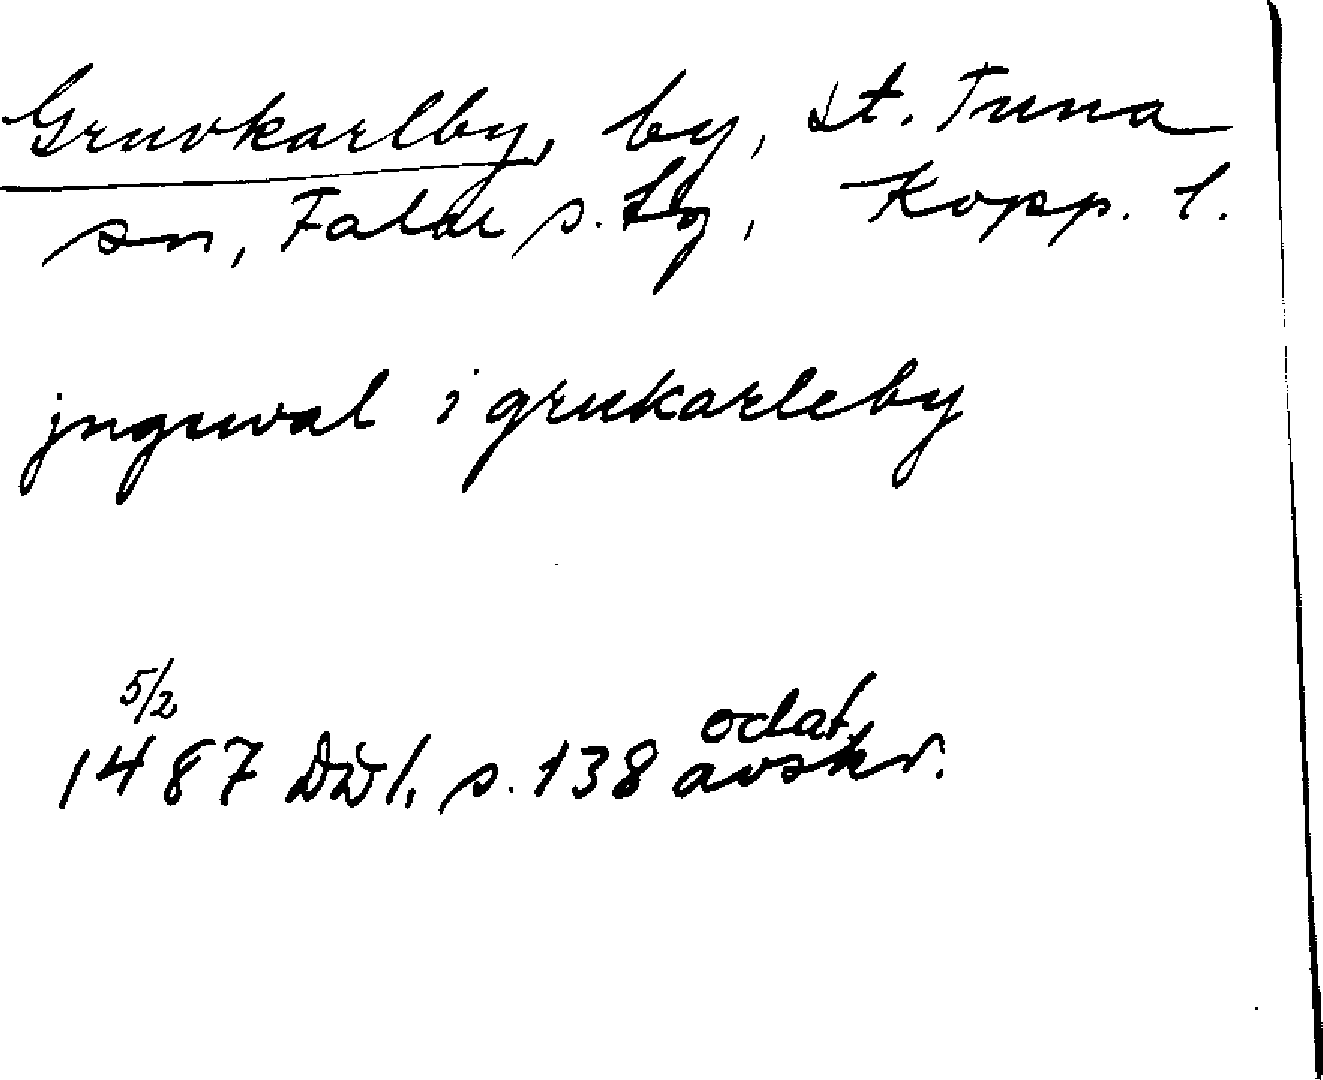 Gruvkarlby, by, St. Tuna
sn, Falu s. tg, Kopp. l.
jnguval i grukarleby
5/2
1487 DD 1, s. 138 odat. avskr.